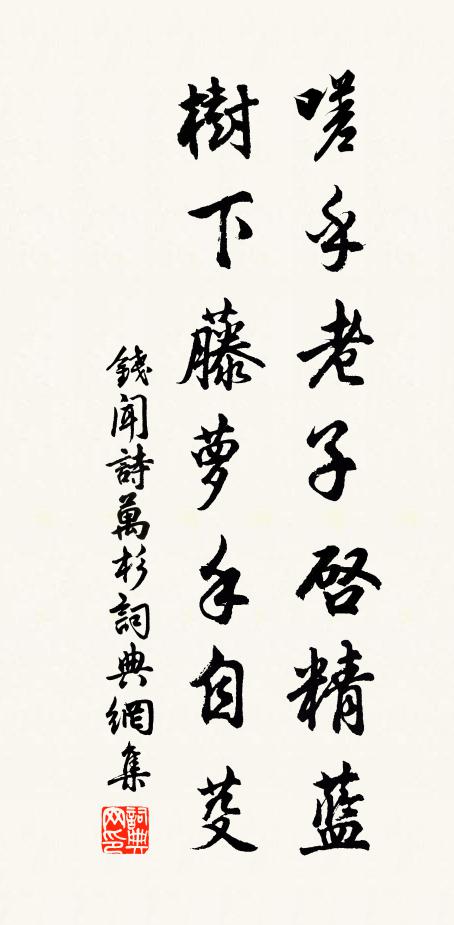 嗟乎老子啓精藍
樹下藤蘿手自芟
錢聞詩萬杉詞典網集
詞典网印